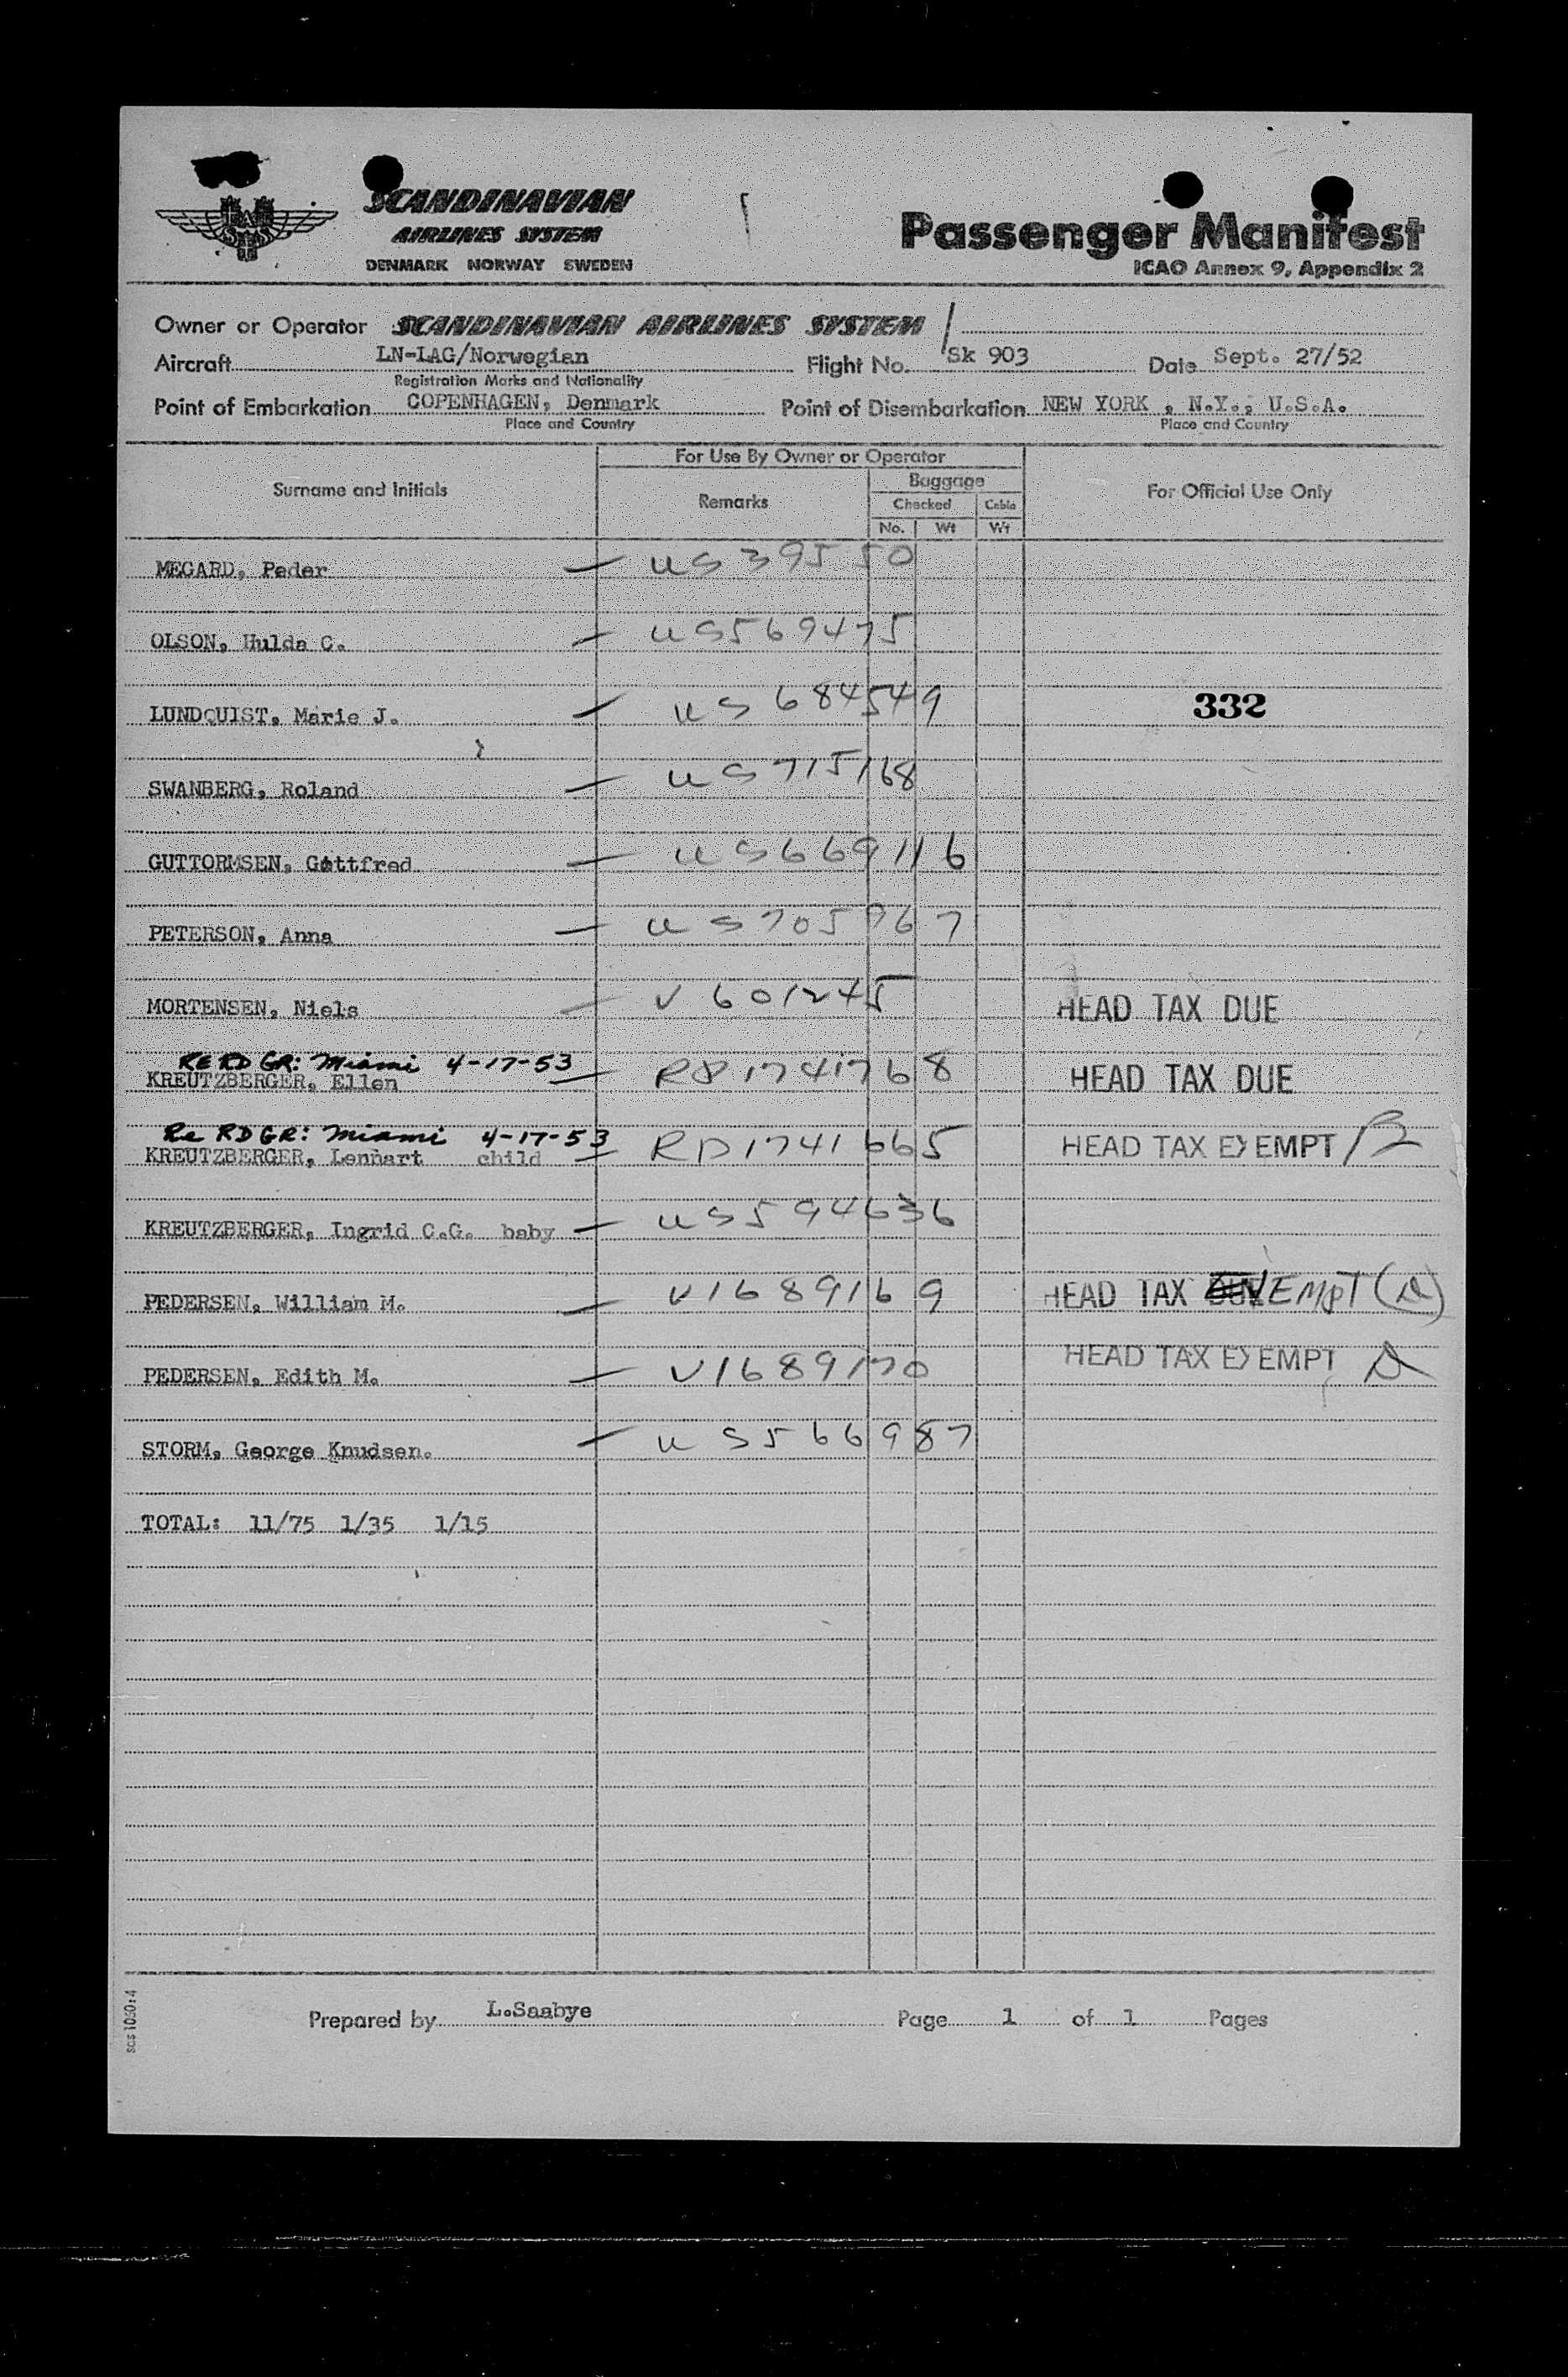 SCANDINAVIAN
AIRLINES SYSTEM
DENMARK NORWAY SWEDEN
Passenger Manifest
ICAO Annex 9, Appendix 2
Owner or Operator SCANDINAVIAN AIRLINES SYSTEM
Aircraft LN-LAG/Norwegian Flight No. Sk 903 Date Sept. 27/52
Registration Marks and Nationality
Point of Embarkation COPENHAGEN, Denmark Point of Disembarkation NEW YORK , N.Y., U.S.A.
Place and Country Place and Country
For Use By Owner or Operator
Surname and Initials Remarks Baggage For Official Use Only
Checked Cabin
No. Wt Wt
MEGARD, Peder — US 39550
OLSON, Hulda C. — US569475
LUNDQUIST, Marie J. — US 684549 332
SWANBERG, Roland — US 715168
GUTTORMSEN, Gottfred — US669116
PETERSON, Anna — US 705767
MORTENSEN, Niels — V 601245 HEAD TAX DUE
RE RD GR: Miami 4-17-53
KREUTZBERGER, Ellen — RP1741768 HEAD TAX DUE
Re RD GR: Miami 4-17-53
KREUTZBERGER, Lennart child — RP1741665 HEAD TAX EXEMPT
KREUTZBERGER, Ingrid C.G. baby — US594636
PEDERSEN, William M. — V1689169 HEAD TAX EMPT
PEDERSEN, Edith M. — V1689170 HEAD TAX EXEMPT
STORM, George Knudsen. — US566987
TOTAL: 11/75 1/35 1/15
Prepared by L.Saabye Page 1 of 1 Pages
sas 1030:4